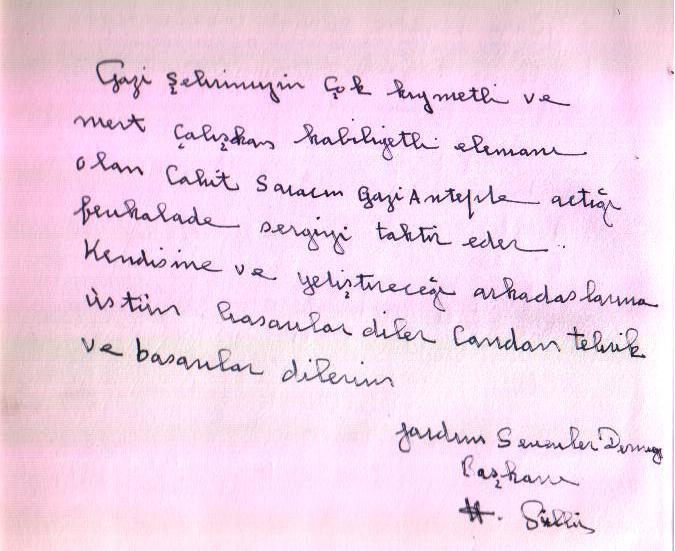 Gazi Şehrimizin Çok kıymetli ve
mert Çalışkan kabiliyetli elemanı
olan Cahit Saracın Gazi Antepte açtığı
fevkalade sergiyi taktir eder
Kendisine ve yetiştireceği arkadaslarına
üstün basarılar diler Candan tebrik
ve basarılar dilerim
Yardım Sevenler Derneği
Başkanı
H.